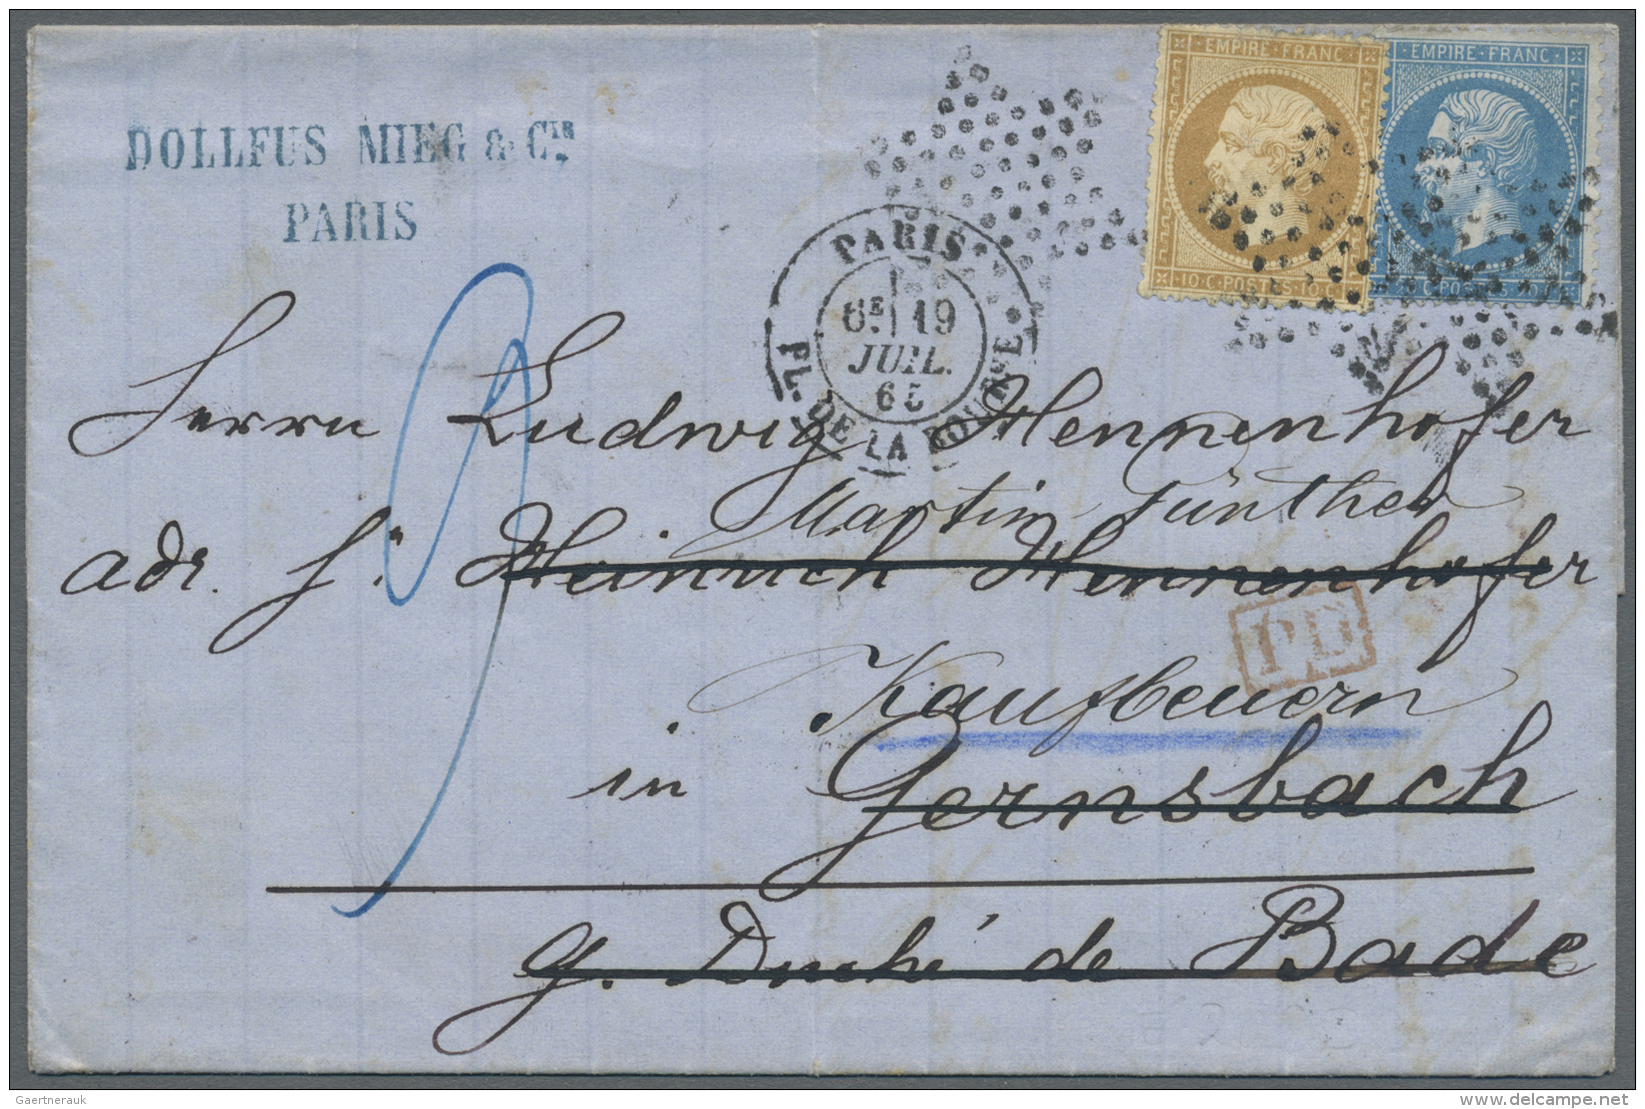 DOLLFUS MIEG & CIE
PARIS
EMPIRE · FRANC
10 · C · POSTES · 10 · C
EMPIRE · FRANC
C · POSTES
PARIS
6E 19
JUIL.
65
PL. DE LA BOURSE
Herrn Ludwig Hennenhofer
Martin Günther
adr. Hn Heinrich Hennenhofer
PD
Kaufbeuern
in Gernsbach
g. Duché de Bade
Gaertnerauk
www.delcampe.net